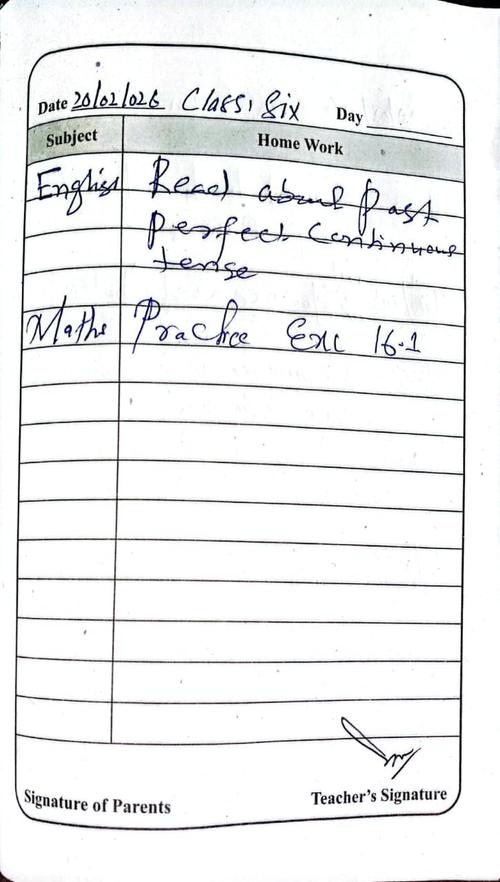 Date 20/02/026 Class: Six Day
Subject Home Work
English Read about Past
Perfect Continuous
tense
Maths Practice Exc 16.1
Signature of Parents Teacher's Signature